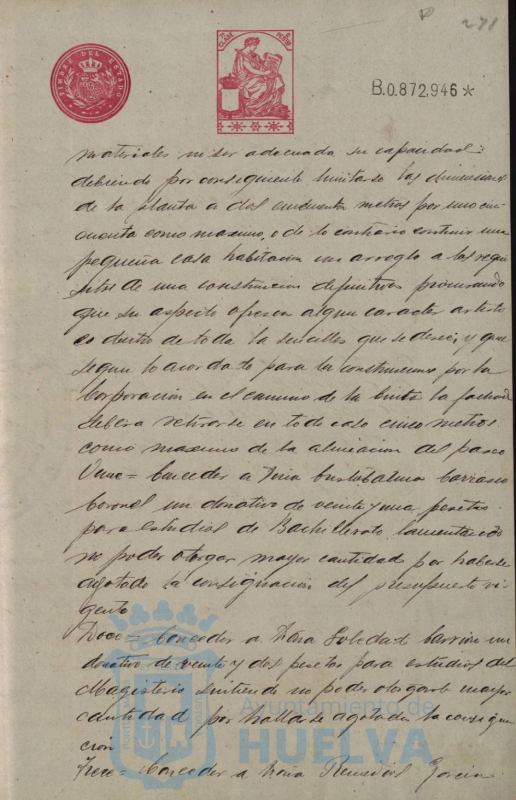 271
TIMBRE DEL ESTADO
CLASE 8ª
B.0.872,946 *
materiales ni ser adecuada su capacidad:
debiendo por consiguiente limitarse las dimensiones
de la planta a dos cincuenta metros por uno cin-
cuenta como maximo, o de lo contrario construir una
pequeña casa habitacion con arreglo a los requi-
sitos de una construccion definitiva procurando
que su aspecto ofrezca algun caracter artisti-
co dentro de toda la sencillez que se desee, y que
segun lo acordado para la construcciones por la
Corporación en el camino de la la fachada
debera retirarse en todo caso cinco metros
como maximo de la alineacion del paseo
Once = Conceder a Doña Carrasco
Coronel un donativo de veinte y una pesetas
para estudios de Bachillerato, lamentando
no poder otorgar mayor cantidad por haberse
agotado la consignacion del presupuesto vi-
gente
Doce = Conceder a Doña Soledad Carrion un
donativo de veinte y dos pesetas para estudios del
Magisterio sintiendo no poder otorgarle mayor
cantidad por hallarse agotada la consigna-
cion
Trece = Conceder a Doña Remedios Garcia
Ayuntamiento de
HUELVA